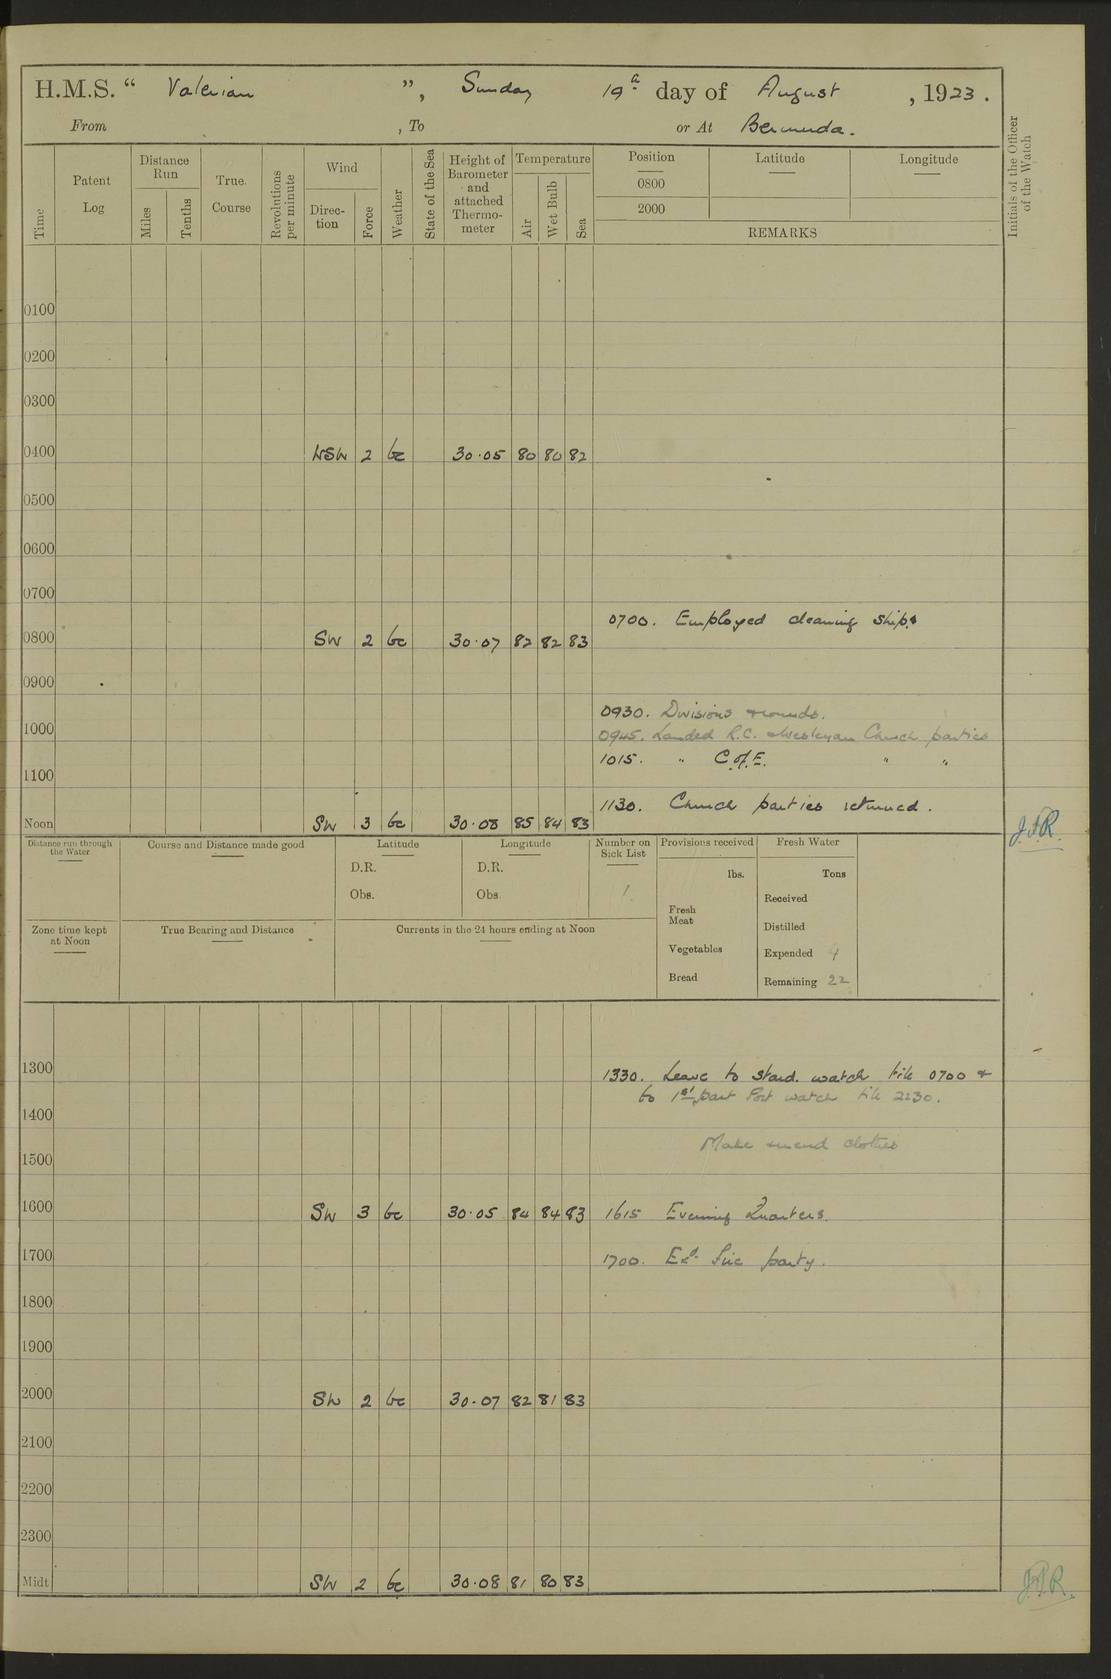 H.M.S. “ Valerian ”, Sunday 19th day of August , 1923.
From , To or At Bermuda.
Time
Patent Log
Distance Run
Miles
Tenths
True Course
Revolutions per minute
Wind
Direction
Force
Weather
State of the Sea
Height of Barometer and attached Thermometer
Temperature
Air
Wet Bulb
Sea
Position Latitude Longitude
0800
2000
REMARKS
Initials of the Officer of the Watch
0100
0200
0300
0400 WSW 2 bc 30.05 80 80 82
0500
0600
0700
0700. Employed cleaning ship.
0800 SW 2 bc 30.07 82 82 83
0900
0930. Divisions & rounds.
1000
0945. Landed R.C. & Wesleyan Church parties
1015. " C. of E. " "
1100
1130. Church parties returned.
Noon SW 3 bc 30.08 85 84 83 J.F.R.
Distance run through the Water
Course and Distance made good
Latitude
D.R.
Obs.
Longitude
D.R.
Obs.
Number on Sick List
1
Provisions received
lbs.
Fresh Meat
Vegetables
Bread
Fresh Water
Tons
Received
Distilled
Expended 4
Remaining 22
Zone time kept at Noon
True Bearing and Distance
Currents in the 24 hours ending at Noon
1300
1330. Leave to Starbd. watch till 0700 &
to 1st part Port watch till 2230.
1400
Make & mend clothes
1500
1600 SW 3 bc 30.05 84 84 83 1615 Evening Quarters.
1700 1700. Exd. fire party.
1800
1900
2000 SW 2 bc 30.07 82 81 83
2100
2200
2300
Midt. SW 2 bc 30.08 81 80 83 J.F.R.